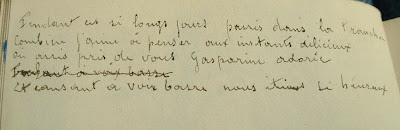 Pendant ces si longs jours passés dans la tranchée
Combien j'aime à penser aux instants délicieux
où assis près de vous Gasparine adorée
Parlant à voix basse
Et causant à voix basse nous étions si heureux